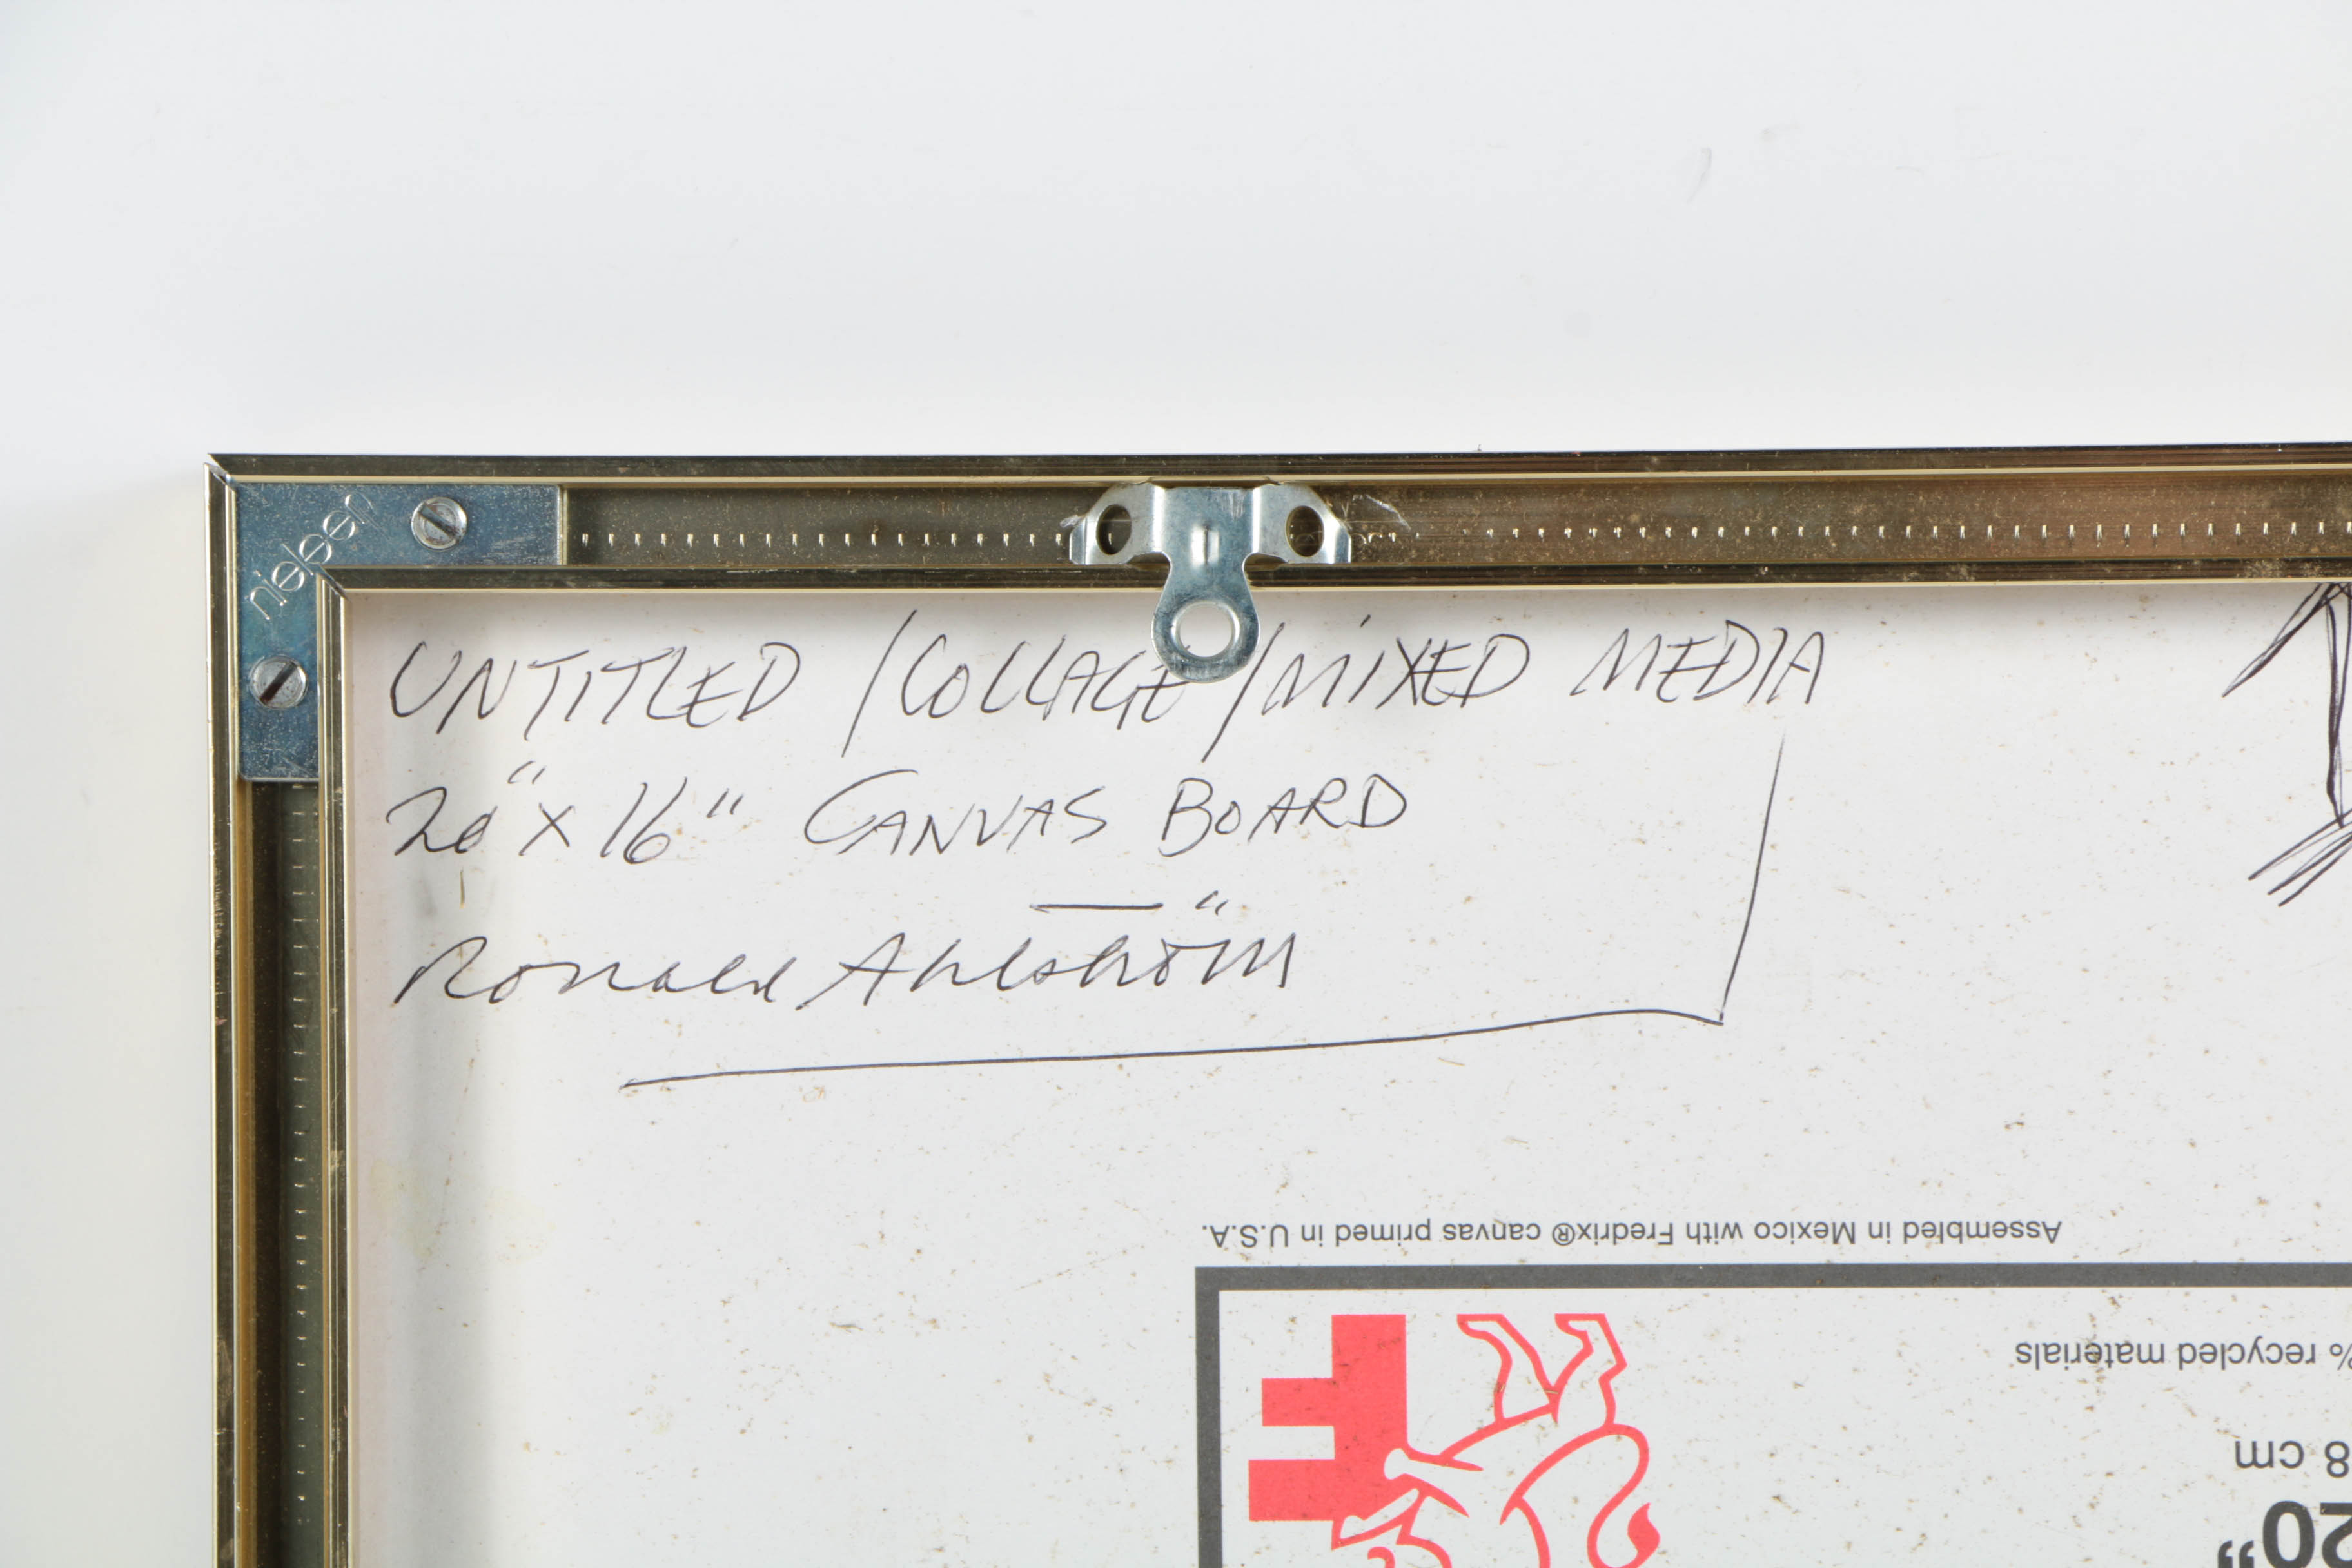 nielsen
UNTITLED / COLLAGE / MIXED MEDIA
20" x 16" CANVAS BOARD
Ronald Ahlström
Assembled in Mexico with Fredrix® canvas primed in U.S.A.
% recycled materials
8 cm
20"